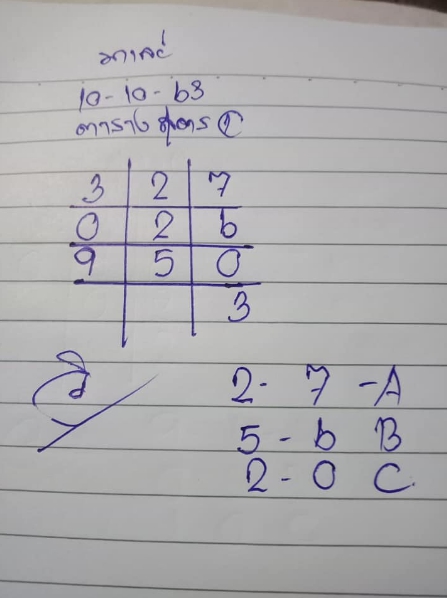 มาเลย์
10-10-63
ตาราง สูตร C
3 2 7
0 2 6
9 5 0
3
2- 7 -A
5 - 6 B
2 - 0 C